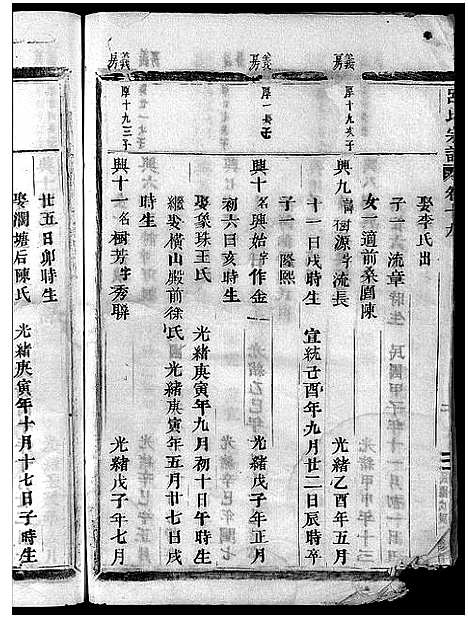 呂氏宗譜 卷十九
娶李氏出
子一 流章
女一 適前桑園陳
義房 厚十九次子
興九 名樹源 字流長 光緒乙酉年五月
十一日戌時生 宣統己酉年九月廿二日辰時卒
子一 隆熙
義房 厚一長子
興十 名興始 字作金 光緒戊子年正月
初六日亥時生
娶象珠王氏 光緒庚寅年九月初十日午時生
繼娶橫山殿前徐氏 光緒庚寅年五月廿七日戌
時生
義房 厚十九三子
興十一 名樹芳 字秀聯 光緒戊子年七月
廿五日卯時生
娶瀾塘后陳氏 光緒庚寅年十月十七日子時生